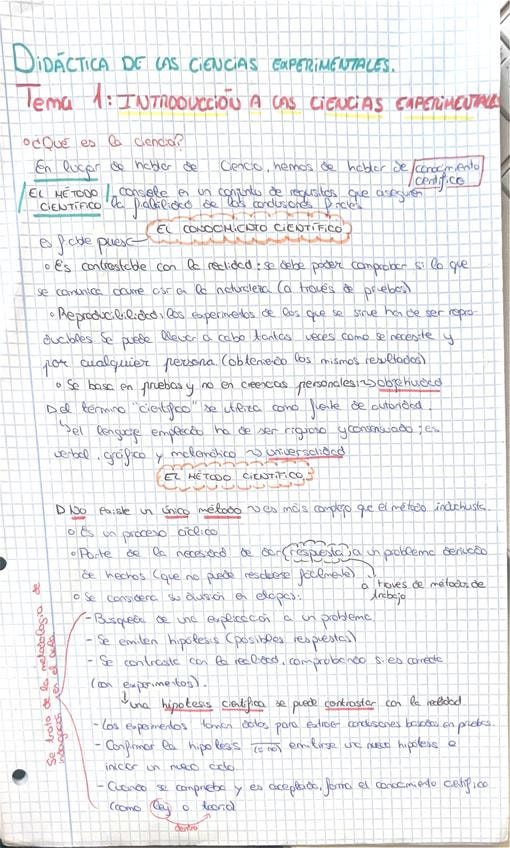 DIDÁCTICA DE LAS CIENCIAS EXPERIMENTALES.
Tema 1: INTRODUCCIÓN A LAS CIENCIAS EXPERIMENTALES
¿Qué es la ciencia?
En lugar de hablar de Ciencia, hemos de hablar de conocimiento
científico
EL MÉTODO CIENTÍFICO, consiste en un conjunto de requisitos que aseguren
la fiabilidad de las conclusiones finales
EL CONOCIMIENTO CIENTÍFICO
es fiable pues:
Es contrastable con la realidad: se debe poder comprobar si lo que
se comunica ocurre así en la naturaleza (a través de pruebas)
Reproducibilidad, los experimentos de los que se sirve han de ser repro-
ducibles. Se puede llevar a cabo tantas veces como se necesite y
por cualquier persona (obteniendo los mismos resultados)
Se basa en pruebas y no en creencias personales objetividad
el término "científico" se utiliza como fuente de autoridad.
el lenguaje empleado ha de ser riguroso y consensuado; es
verbal, gráfico y matemático universalidad
EL MÉTODO CIENTÍFICO
NO existe un único método es más complejo que el método inductivista.
Es un proceso cíclico
Parte de la necesidad de dar respuesta a un problema derivado
de hechos (que no puede resolverse fácilmente).
a través de métodos de
trabajo
Se considera su división en etapas:
- Búsqueda de una explicación a un problema.
- Se emiten hipótesis (posibles respuestas)
- Se contrasta con la realidad, comprobando si es correcta
(con experimentos).
una hipótesis científica se puede contrastar con la realidad
- Los experimentos toman datos para extraer conclusiones basadas en pruebas.
- Confirmar la hipótesis (o no) emitirse una nueva hipótesis e
iniciar un nuevo ciclo.
- Cuando se comprueba y es aceptado, forma el conocimiento científico
(como ley o teoría)
dentro
Se trata de la metodología de
indagación en el aula